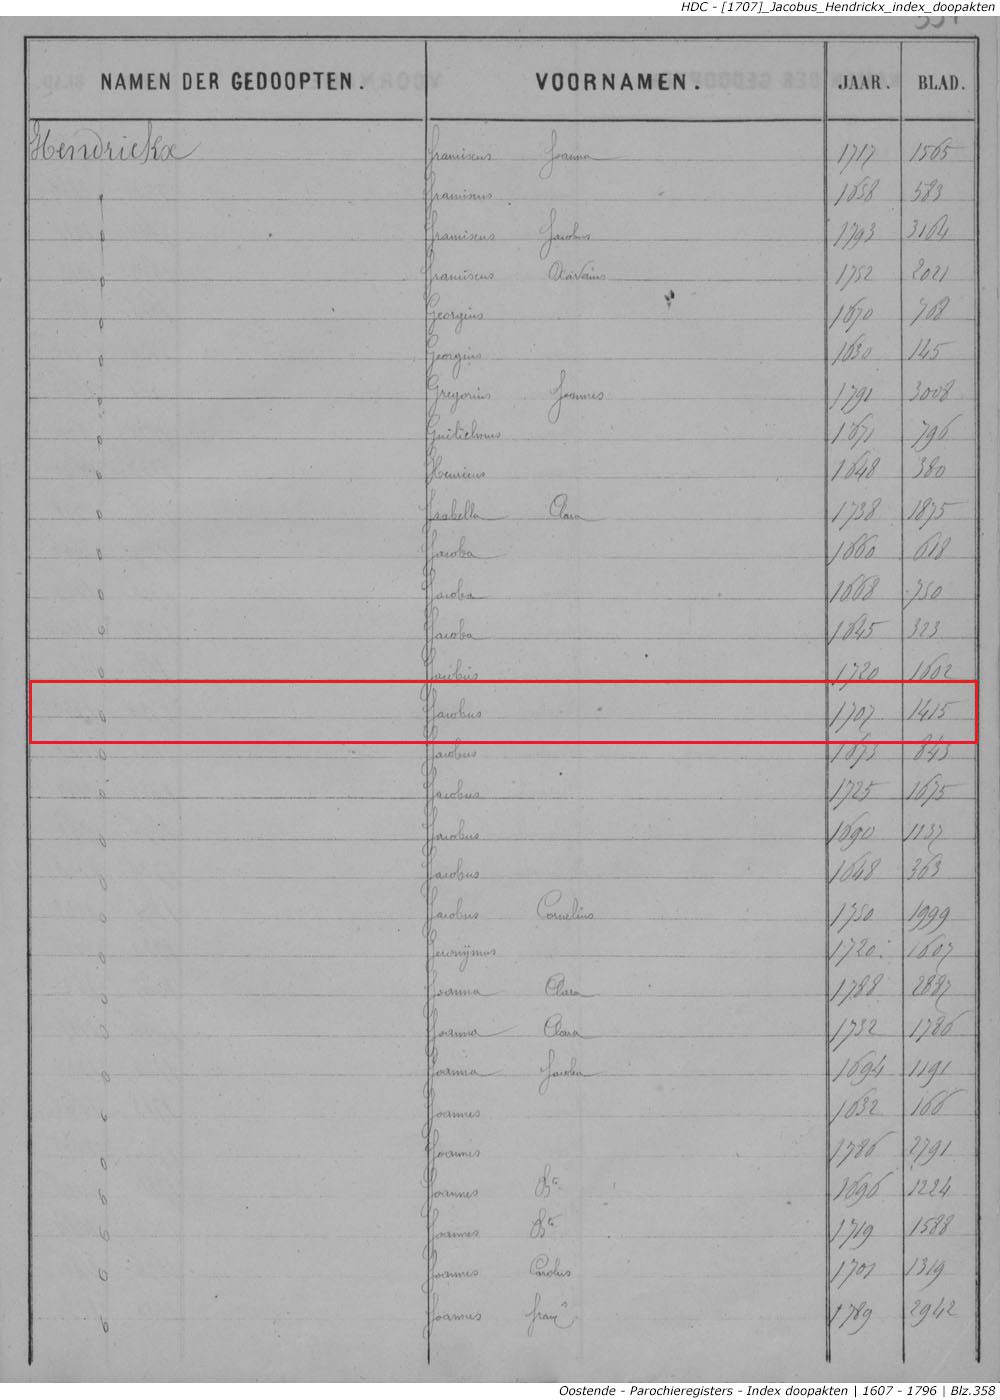 HDC - [1707]_Jacobus_Hendrickx_index_doopakten
NAMEN DER GEDOOPTEN. VOORNAMEN. JAAR. BLAD.
Hendrickx Franciscus Joanna 1717 1565
Franciscus 1658 583
Franciscus Jacobus 1793 3164
Franciscus 1752 2021
Georgius 1670 768
Georgius 1630 145
Gregorius Joannes 1791 3008
Guilielmus 1671 796
Henricus 1648 380
Isabella Clara 1738 1875
Jacoba 1660 618
Jacoba 1668 750
Jacoba 1645 323
Jacobus 1720 1602
Jacobus 1707 1415
Jacobus 1673 843
Jacobus 1725 1675
Jacobus 1690 1137
Jacobus 1648 363
Jacobus Cornelius 1750 1999
Jeronijmus 1720 1607
Joanna Clara 1788 2887
Joanna Clara 1732 1786
Joanna Jacoba 1694 1191
Joannes 1632 166
Joannes 1786 2791
Joannes Bte 1696 1224
Joannes Bte 1719 1588
Joannes Carolus 1701 1319
Joannes 1789 2942
Oostende - Parochieregisters - Index doopakten | 1607 - 1796 | Blz.358